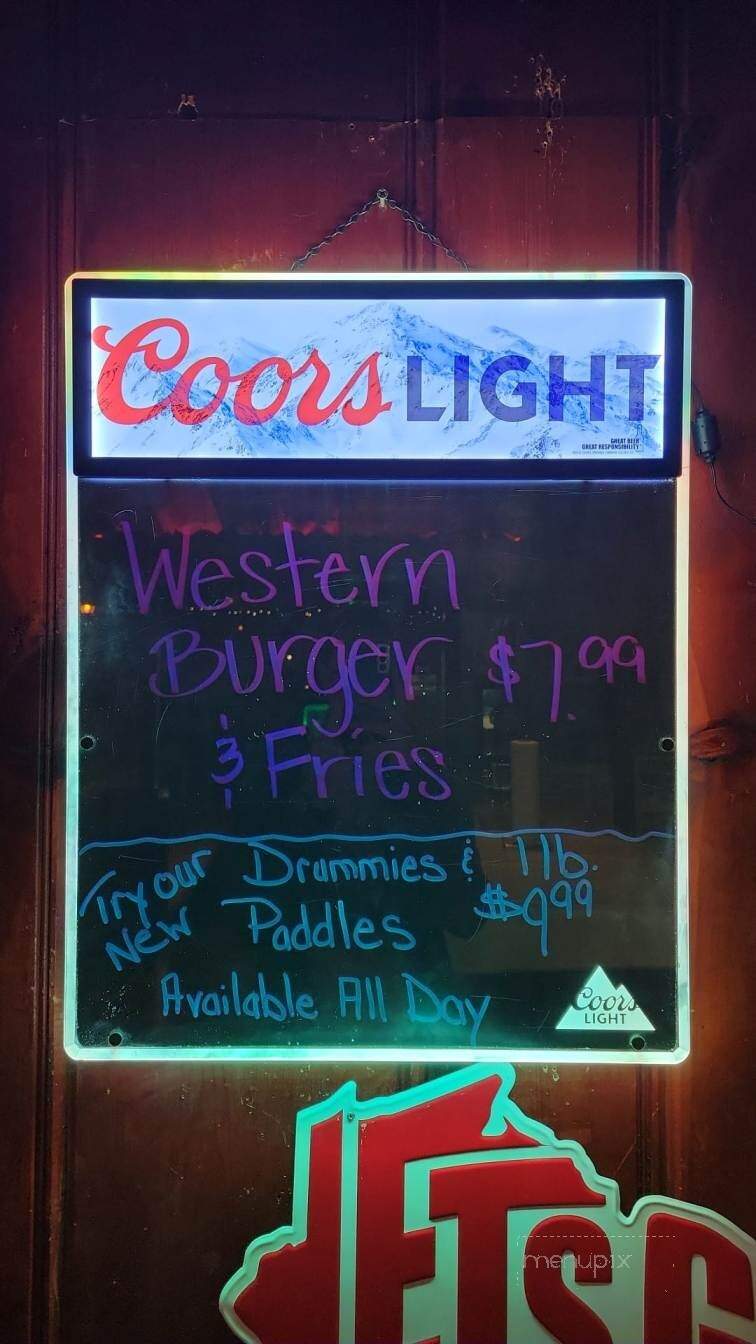 Coors LIGHT
GREAT BEER
GREAT RESPONSIBILITY
Western
Burger $7.99
& Fries
Try our Drummies & 1 lb.
New Paddles $9.99
Available All Day
Coors
LIGHT
ETSG
menupix